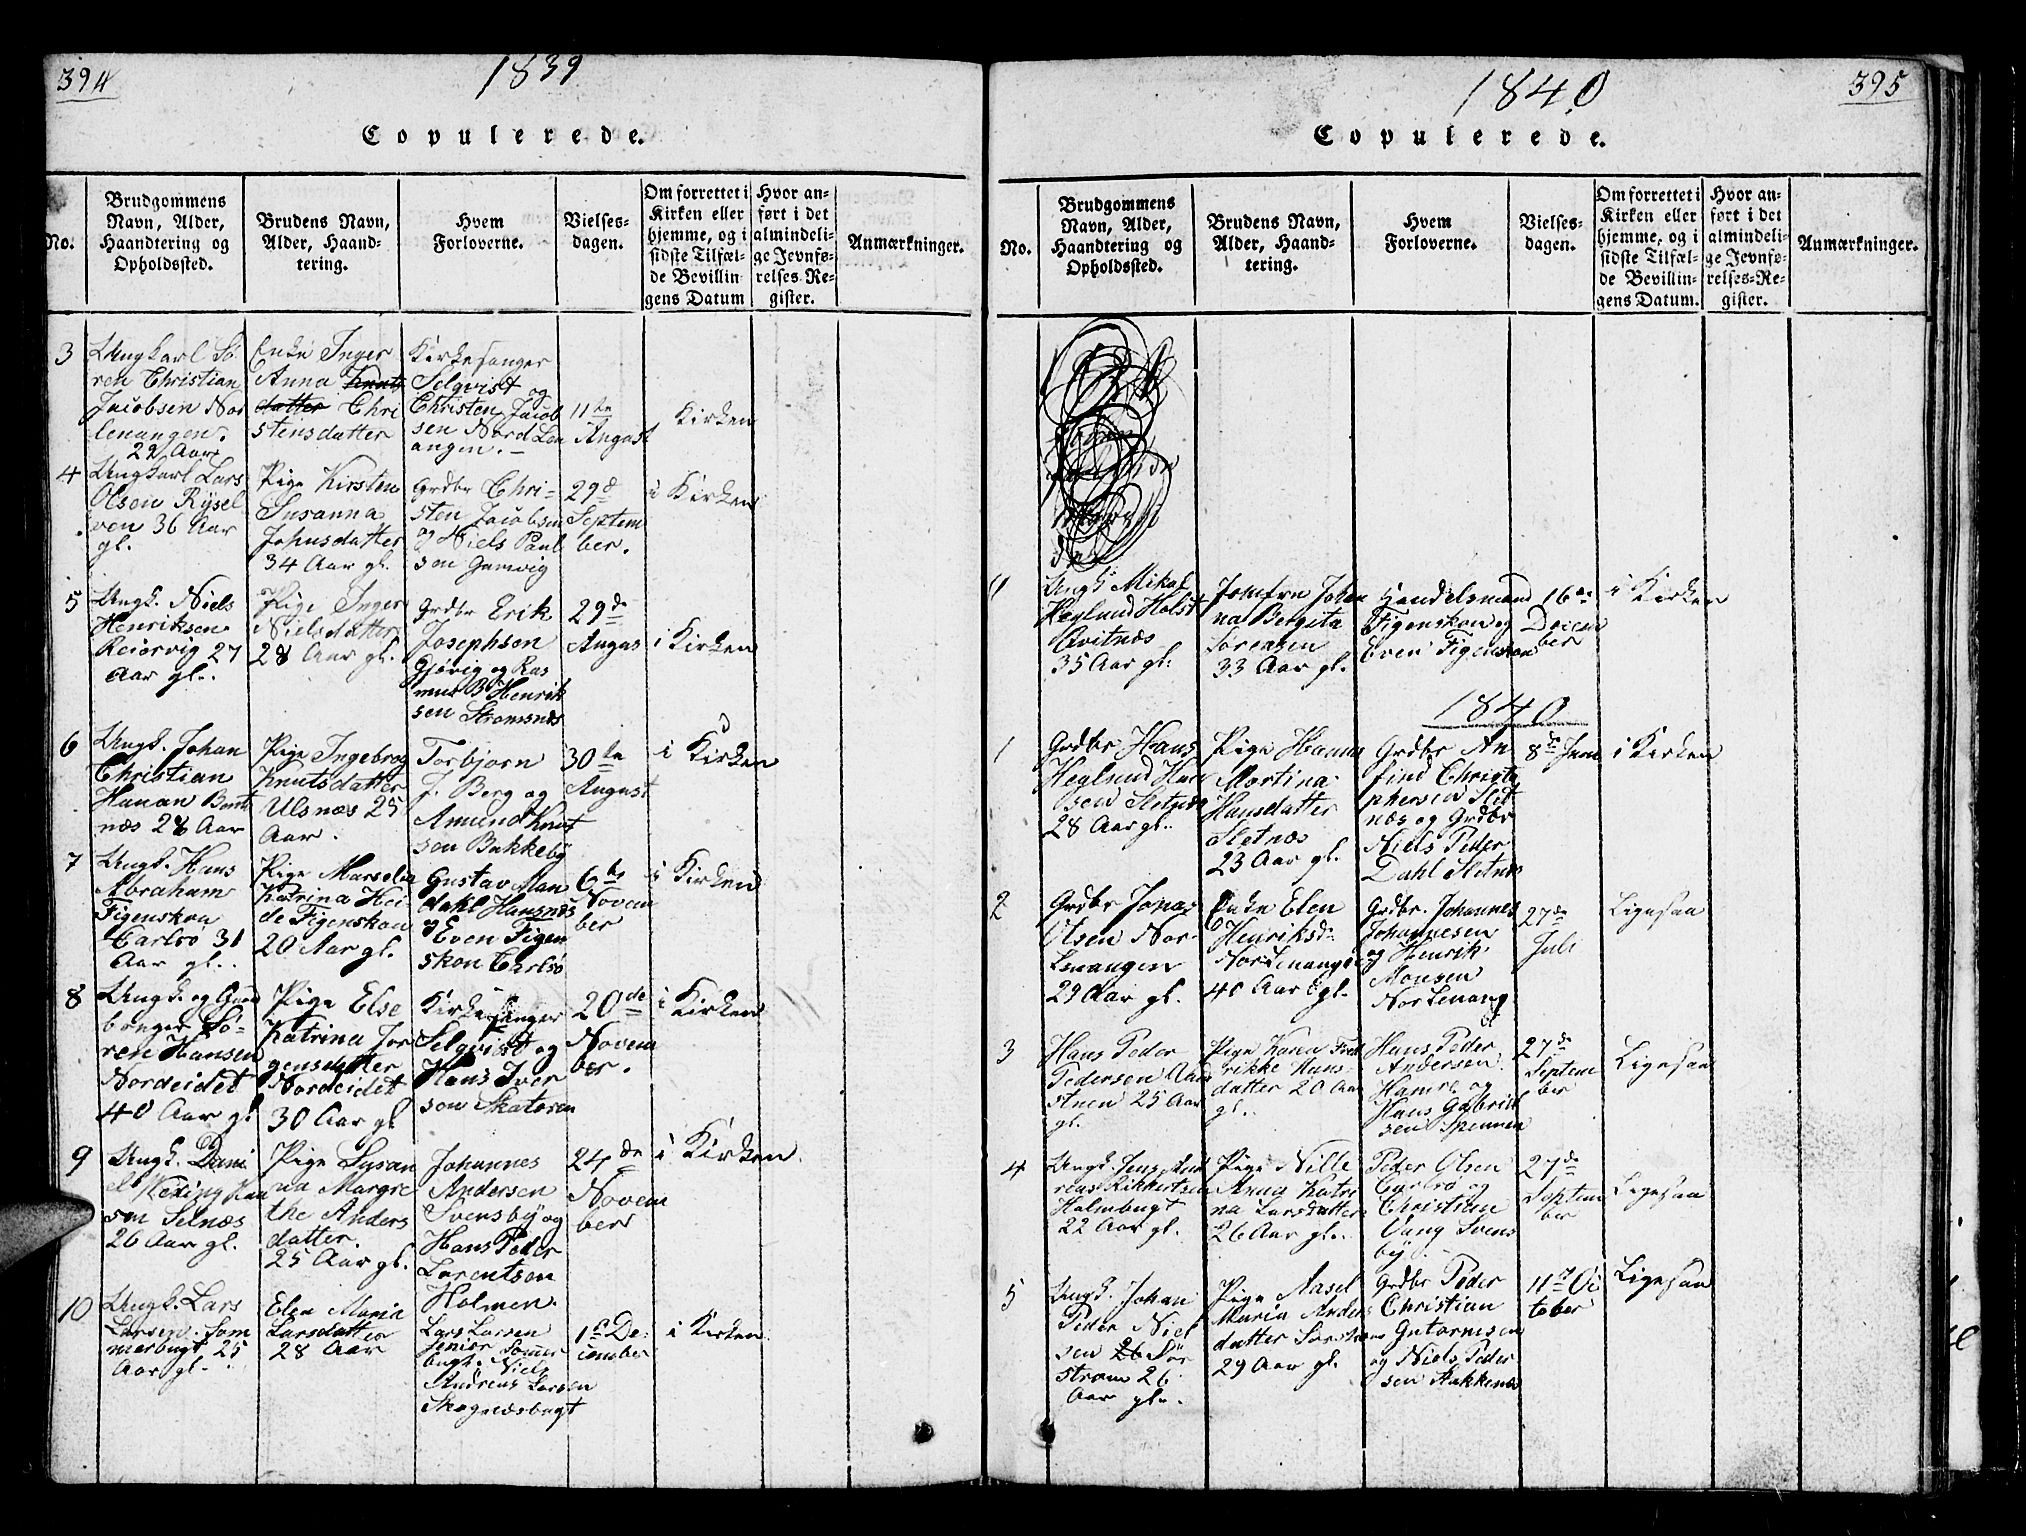 394
1839
Copulerede.
No.
Brudgommens
Navn, Alder,
Haandtering og
Opholdssted.
Brudens Navn,
Alder, Haand-
tering.
Hvem
Forloverne.
Vielses-
dagen.
Om forrettet i
Kirken eller
hjemme, og i
sidste Tilfæl-
de Bevillin-
gens Datum
Hvor an-
ført i det
almindeli-
ge Jevnfø-
relses-Re-
gister.
Anmærkninger.
3
Ungkarl Sö
ren Christian
Jacobsen Nor
lenangen.
22 Aar
Enke Inger
Anna Knuts
datter Chri
stensdatter
Kirkesanger
Selqvist og
Christen Jacob
sen Nord Len
angen.
11te
August
Kirken
4
Ungkarl Lars
Olsen Rÿsel
ven 36 Aar
gl.
Pige Kirsten
Susanna
Johnsdatter
34 Aar gl.
Grdbr Chri-
sten Jacobsen
og Niels Paul
sen Gamvig
29de
Septem
ber.
i Kirken
5
Ungk. Niels
Henriksen
Reiervig 27
Aar gl.
Pige Inger
Nielsdatter
28 Aar gl.
Grdbr Erik
Josephsen
Gjövig og Ras
mus B Henrik
sen Stromsnæs
29de
Augus
i Kirken
6
Ungk. Johan
Christian
Hanan
næs 28 Aar
Pige Ingebrog
Knutsdatter
Ulsnæs 25
Aar.
Torbjorn
J. Berg og
Amund Knut
sen Bakkebÿ
30te
August
i Kirken
7
Ungk. Hans
Abraham
Figenskou
Carlsö 31
Aar gl.
Pige Marselia
Katrina Hei
de Figenskou
20 Aar gl.
Gustav Man
dahl Hansnæs
og Even Figen
skou Carlsö
6te
Novem
ber
i Kirken
8
Ungk. og Gaard
bruger Sö-
ren Hansen
Nordeidet
40 Aar gl
Pige Else
Katrina Jör
gensdatter
Nordeidet
30 Aar gl
Kirkesanger
Selqvist og
Hans Iver
sen Skatören
20de
Novem
ber.
i Kirken
9
Ungk. Dani
el Kexing Han
sen Selnæs
26 Aar gl.
Pige Susan
na Margre
the Anders
datter.
25 Aar gl.
Johannes
Andersen
Svensbÿ og
Hans Peder
Larentsen
Holmen.
24de
Novem
ber
i Kirken.
10
Ungk. Lars
Larsen. Som
merbugt 25
Aar gl.
Elen Maria
Larsdatter
28 Aar
Lars Larsen
senior Sommer
bugt. Niels
Andreas Larsen
Skognæsbugt
1ste De-
cember
i Kirken.
395
1840
Copulerede.
No.
Brudgommens
Navn, Alder,
Haandtering og
Opholdssted.
Brudens Navn,
Alder, Haand-
tering.
Hvem
Forloverne.
Vielses-
dagen.
Om forrettet i
Kirken eller
hjemme, og i
sidste Tilfæl-
de Bevillin-
gens Datum.
Hvor an-
ført i det
almindeli-
ge Jevnfø-
relses-Re-
gister.
Anmærkninger.
11
Ungk. Mikal
Heglund Holst
Qvitnæs
35 Aar gl.
Jomfru Johan
na Bergita
Sörensen
33 Aar gl.
Handelsmand
Figenskou og
Even Figenskou
16de
Decem
ber
i Kirken
1840
1
Grdbr Hans
Heglund Han
sen Sletnæs
28 Aar gl.
Pige Hanna
Martina
Hansdatter
Sletnæs
23 Aar gl.
Grdbr An
find Christo
phersen Slet
næs og Grdbr
Niels Peder
Dahl Sletnæs
8de Juni
i Kirken
2
Grdbr Jonas
Olsen Nor-
Lenangen
29 Aar gl.
Enke Elen
Henriksd.
Nordlenangen
40 Aar gl.
Grdbr. Johannes
Johannesen
og Henrik
Monsen
Nor Lenang
27de
Juli
Ligesaa
3
Hans Peder
Pedersen
25 Aar
gl.
Pige Karen Fred
rikke Hans-
datter 20 Aar
gl.
Hans Peder
Andersen
Hamre og
Hans Gabriel
sen Spennen
27de
Septem
ber
Ligesaa
4
Ungk. Jens And
reas Rikkertsen
Holmbugt
22 Aar gl.
Pige Nille
Anna Katri
na Larsdatter
26 Aar gl.
Peder Olsen
Carlsö og
Christian
Vang Svens
bÿ.
27de
Septem
ber
Ligesaa
5
Ungk. Johan
Peder Niel
sen 26 Sör
strøm 26
Aar gl.
Pige Aasel
Maria Anders
datter
29 Aar gl.
Grdbr Peder
Christian
Gutormsen
og Niels Peder
sen Aakkenæs
11te Oc
tober
Ligesaa